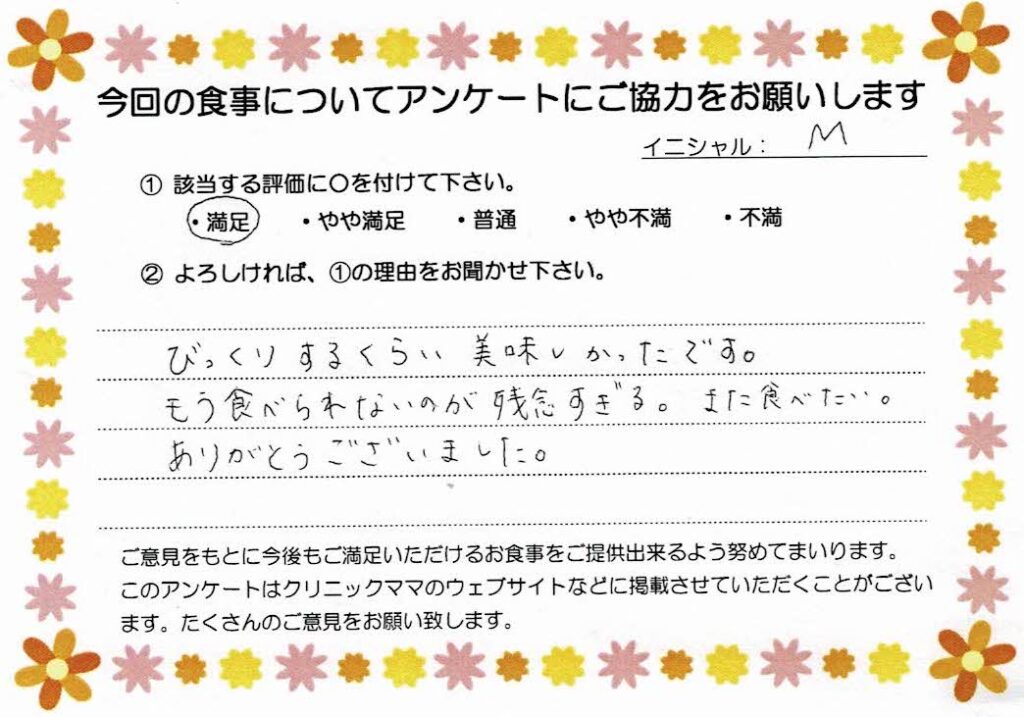 今回の食事についてアンケートにご協力をお願いします
イニシャル： M
① 該当する評価に〇を付けて下さい。
・満足 ・やや満足 ・普通 ・やや不満 ・不満
② よろしければ、①の理由をお聞かせ下さい。
びっくりするくらい 美味しかったです。
もう食べられないのが 残念すぎる。また食べたい。
ありがとうございました。
ご意見をもとに今後もご満足いただけるお食事をご提供出来るよう努めてまいります。
このアンケートはクリニックママのウェブサイトなどに掲載させていただくことがござい
ます。たくさんのご意見をお願い致します。